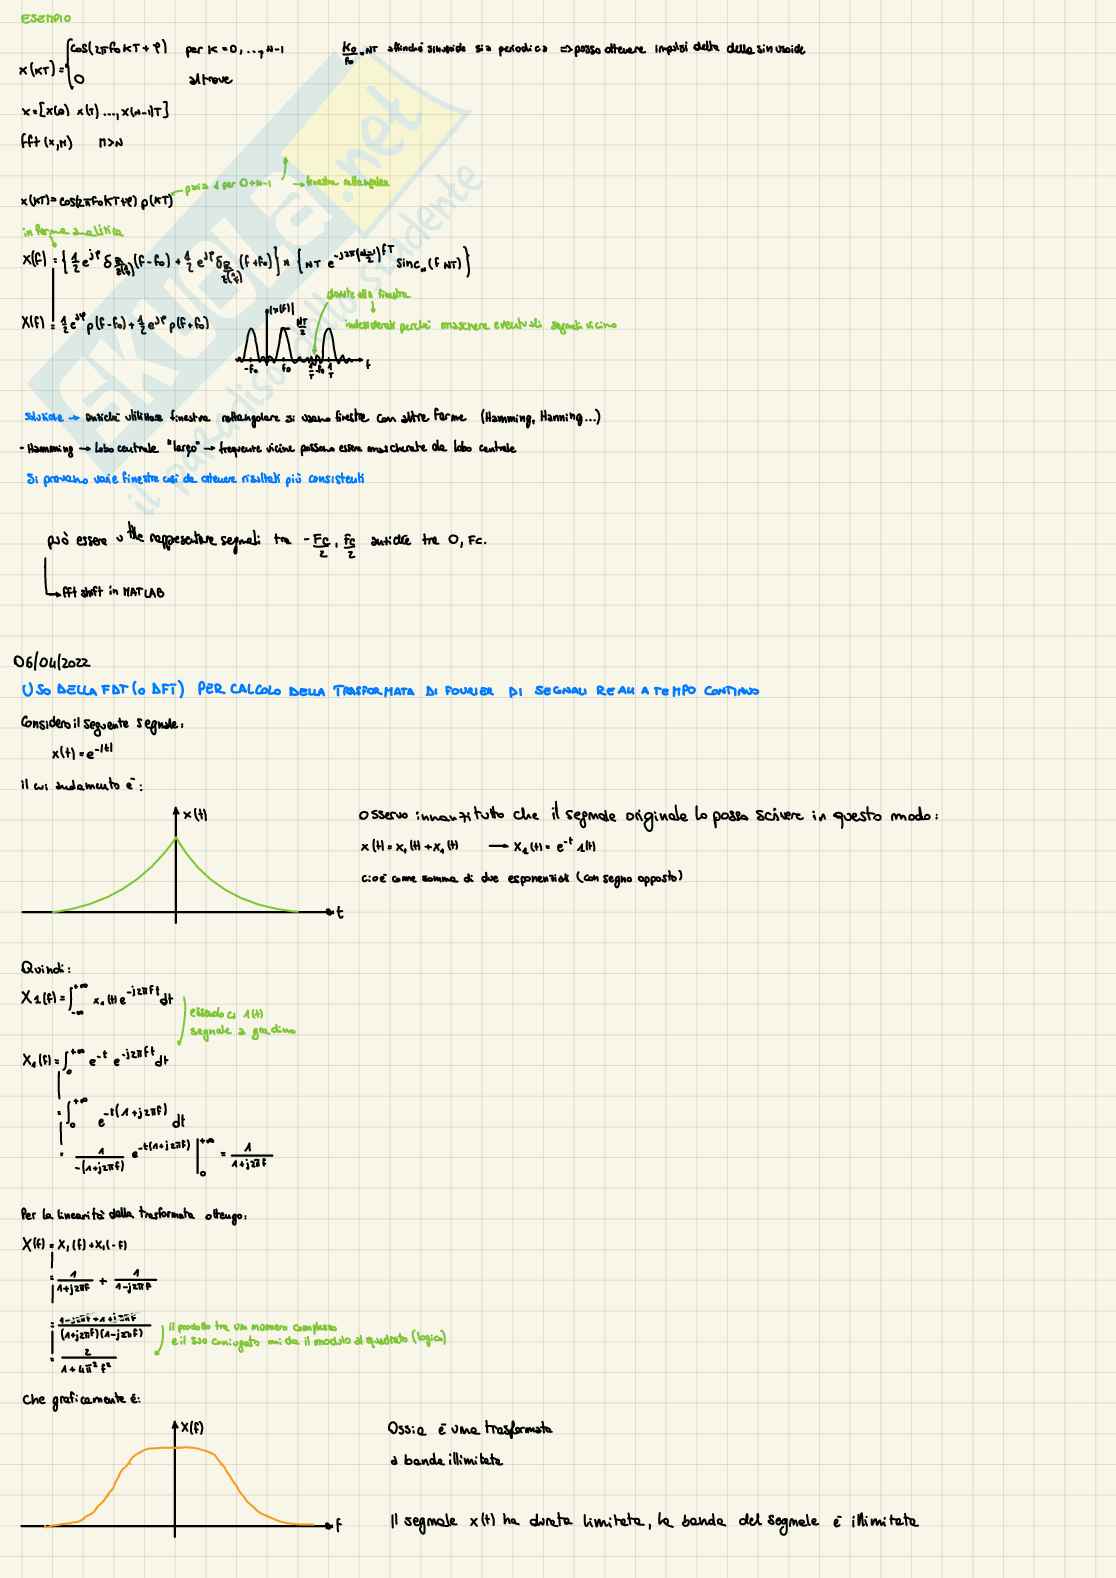 ESEMPIO
x(KT) = { cos(2πf₀KT + φ) per K = 0, ..., N-1
0 altrove
K₀/f₀ = NT affinché sinusoide sia periodica => posso ottenere impulsi delta della sinusoide
x = [x(0) x(T) ..., x(N-1)T]
fft (x,M) M>N
x(KT) = cos(2πf₀KT+φ) p(KT)
passa 1 per 0÷N-1 → finestra rettangolare
in forma analitica
X(f) = { 1/2 e^jφ δ (f-f₀) + 1/2 e^jφ δ (f+f₀) } * { NT e^-j2π(N-1/2)fT sinc_N (f NT) }
dovute alla finestra
X(f) = 1/2 e^jφ p(f-f₀) + 1/2 e^jφ p(f+f₀)
|x(f)|
NT/2
indesiderati perché maschere eventuali segnali vicino
-f₀ f₀ 1/T-f₀ 1/T f
Soluzione → anziché utilizzare finestra rettangolare si usano finestre con altre forme (Hamming, Hanning...)
- Hamming → lobo centrale "largo" → frequenze vicine possono essere mascherate da lobo centrale
Si provano varie finestre così da ottenere risultati più consistenti
può essere utile rappresentare segnali tra -Fc/2, Fc/2 anziché tra 0, Fc.
fft shift in MATLAB
06/04/2022
USO DELLA FDT (O DFT) PER CALCOLO DELLA TRASFORMATA DI FOURIER DI SEGNALI REALI A TEMPO CONTINUO
Considero il seguente segnale:
x(t) = e^-|t|
il cui andamento è:
x(t)
t
Osservo innanzitutto che il segnale originale lo posso scrivere in questo modo:
x(t) = x₁(t) + x₁(t) → x₁(t) = e^-t 1(t)
cioè come somma di due esponenziali (con segno opposto)
Quindi:
X₁(f) = ∫_-∞^+∞ x₁(t) e^-j2πft dt
essendoci 1(t)
segnale a gradino
X₁(f) = ∫₀^+∞ e^-t e^-j2πft dt
= ∫₀^+∞ e^-t(1+j2πf) dt
= 1/-(1+j2πf) e^-t(1+j2πf) |₀^+∞ = 1/1+j2πf
Per la linearità della trasformata ottengo:
X(f) = X₁(f) + X₁(-f)
= 1/1+j2πf + 1/1-j2πf
= 1-j2πf+1+j2πf/(1+j2πf)(1-j2πf)
il prodotto tra un numero complesso
e il suo coniugato mi da il modulo al quadrato (logica)
= 2/1+4π²f²
Che graficamente è:
X(f)
f
Ossia è una trasformata
a banda illimitata
Il segnale x(t) ha durata limitata, la banda del segnale è illimitata
SKUOLA.net
il paradiso dello studente